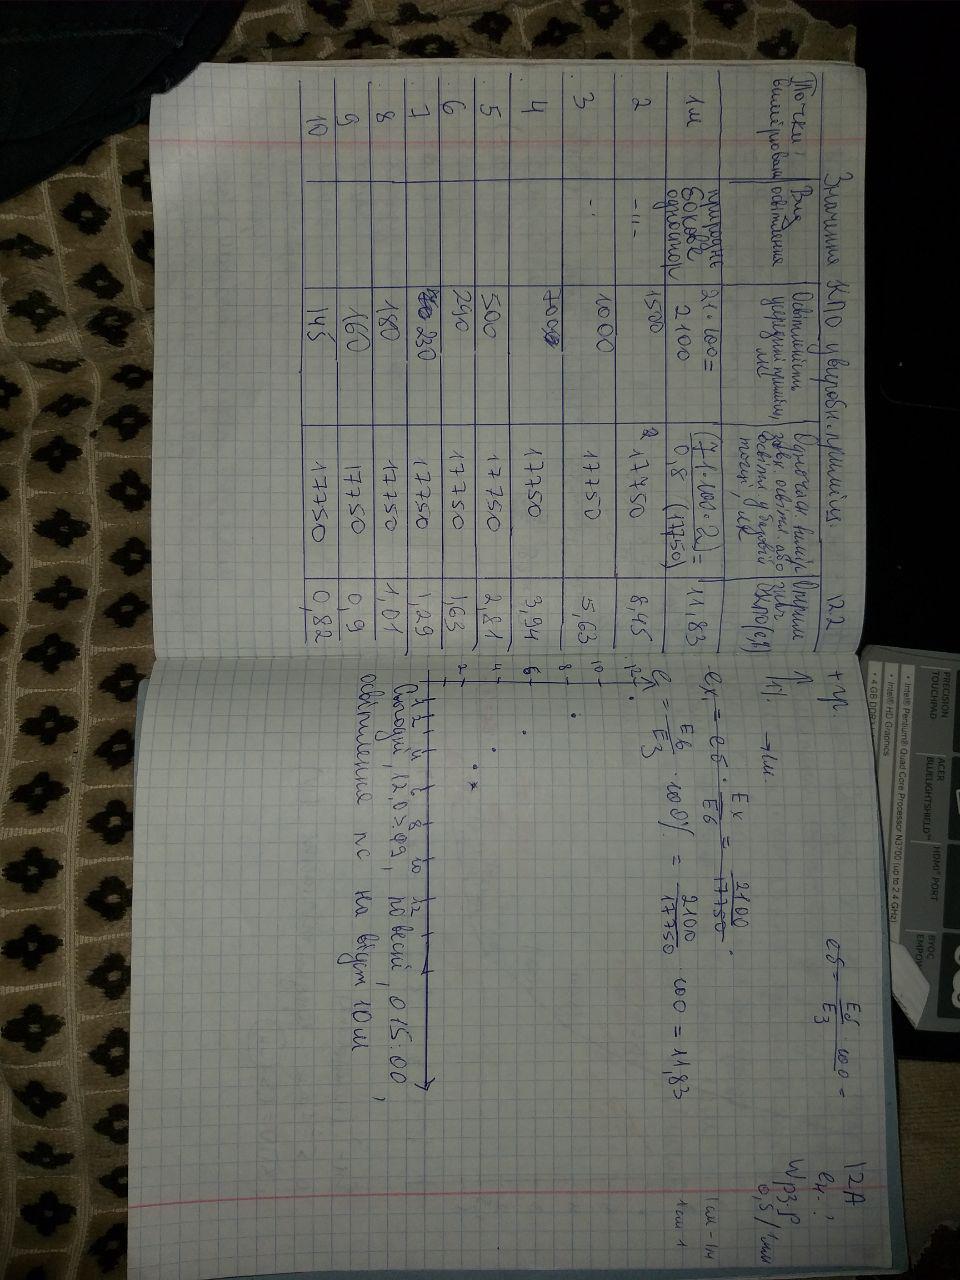 PRECISION
TOUCHPAD
ACER
BLUELIGHTSHIELD™
HDMI® PORT
BYOC
• Intel® Pentium® Quad Core Processor N3700 (up to 2.4 GHz)
• Intel® HD Graphics
Значення КПО у виробн. приміщ. 122
Точки вимірювань
Вид освітлення
Освітленість усередині приміщ, лк
Одночасн. вимір зовн. освітл. або освітл. у базовій точці, лк
Отрим знач КПО (е,%)
1м природнє бокове одностор 21·100= 2100 (71·100·2)= 0,8 (17750) 11,83
2 -"- 1500 17750 8,45
3 17750 1000 5,63
4 700 17750 3,94
5 500 17750 2,81
6 290 17750 1,63
7 230 17750 1,29
8 180 17750 1,01
9 160 17750 0,9
10 145 17750 0,82
+ гр.
eб = Eб/Eз · 100 =
12А
1%
→ 1м.
0,5 / 1мм
ex₁ = eб · Ex/Eб = 2100/17750
e₁ = Eб/Eз · 100% = 2100/17750 · 100 = 11,83
12
10
8
6
4
2
1 2 4 6 8 10 12
Сьогодні, по весні, о 15:00,
освітлення на відст 10м